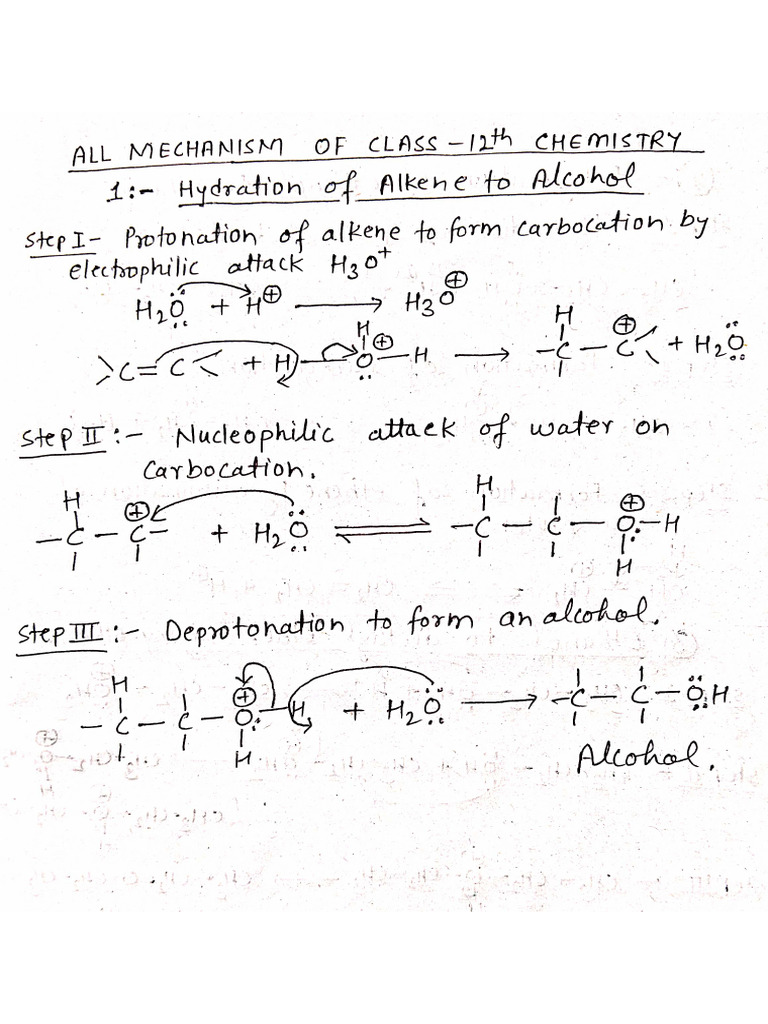 ALL MECHANISM OF CLASS-12th CHEMISTRY
1:- Hydration of Alkene to Alcohol
Step I- Protonation of alkene to form carbocation by
electrophilic attack H3O+
H2O + H⊕ → H3O⊕
>C=C< + H-O⊕-H → -C-C⊕< + H2O
H H
Step II:- Nucleophilic attack of water on
Carbocation.
H H
-C-C⊕- + H2O ⇌ -C-C-O⊕-H
H
Step III:- Deprotonation to form an alcohol.
H
-C-C-O⊕-H + H2O → -C-C-OH
H
Alcohol.